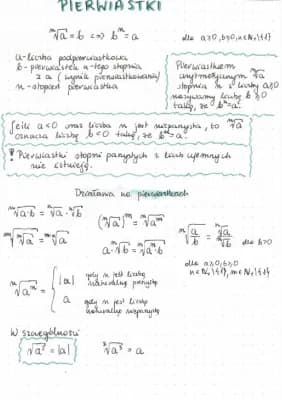 PIERWIASTKI
ⁿ√a = b <=> bⁿ = a dla a≥0, b≥0, n∈N₊\{1}
a - liczba podpierwiastkowa
b - pierwiastek n-tego stopnia z a (wynik pierwiastkowania)
n - stopień pierwiastka
Pierwiastkiem
arytmetycznym ⁿ√a
stopnia n z liczby a≥0
nazywamy liczbę b≥0
taką, że bⁿ=a.
Jeśli a<0 oraz liczba n jest nieparzysta, to ⁿ√a
oznacza liczbę b<0 taką, że bⁿ=a.
! Pierwiastki stopni parzystych z liczb ujemnych
nie istnieją.
Działania na pierwiastkach
ⁿ√a·b = ⁿ√a · ⁿ√b
(ⁿ√a)ᵐ = ⁿ√aᵐ
ⁿ√a/b = ⁿ√a/ⁿ√b dla b>0
a·ⁿ√b = ⁿ√aⁿ·b
dla a≥0, b≥0
n∈N₊\{1}, m∈N₊\{1}
ⁿ√aⁿ = { |a| gdy n jest liczbą
naturalną parzystą
a gdy n jest liczbą
naturalną nieparzystą
W szczególności
√a² = |a| ³√a³ = a